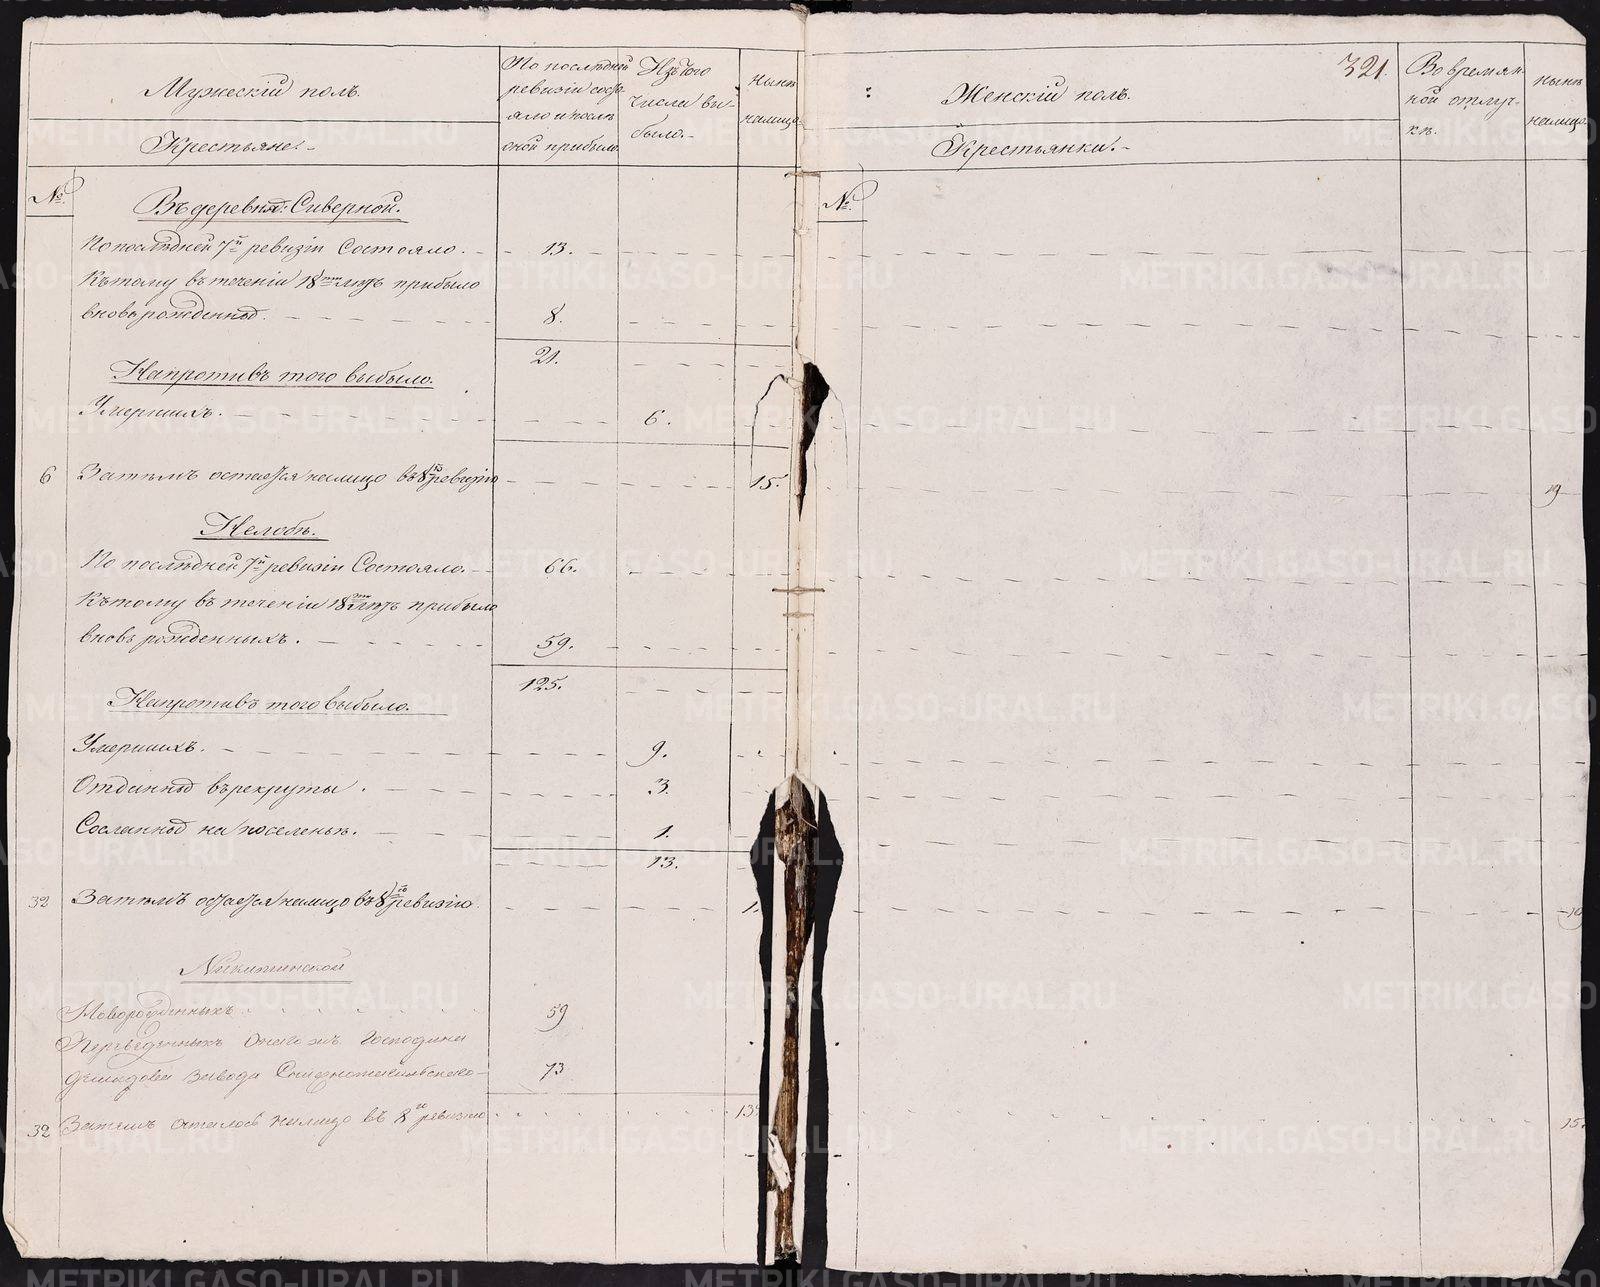 Мужескій полъ.
По послѣдней ревизіи состояло и послѣ оной прибыло.
Изъ того числа выбыло.-
Нынѣ налицо.
Крестьяне.-
№.
Въ деревнѣ: Сиверной.
По послѣдней 7й ревизіи Состояло. 13.
Къ тому въ теченіи 18ти лѣтъ прибыло
вновь рожденныхъ. 8.
21.
Напротивъ того выбыло.
Умершихъ. 6.
6 Затѣмъ остается налицо въ 8ю ревизію 15.
Келобѣ.
По послѣдней 7й ревизіи Состояло. 66.
Къ тому въ теченіи 18ти лѣтъ прибыло
вновь рожденныхъ. 59.
125.
Напротивъ того выбыло.
Умершихъ. 9.
Отданныхъ въ рекруты. 3.
Сосланныхъ на поселенье. 1.
13.
32 Затѣмъ остается налицо въ 8ю ревизію 1
Никитинской
Новорожденныхъ 59
Переведенныхъ Онаго жъ Господина
завода 73
32 Затѣмъ осталось налицо въ 8ю ревизію 13
321.
Женскій полъ.
Во временной отлучкѣ.
Нынѣ налицо.
Крестьянки.-
№.
19
10
15
METRIKI.GASO-URAL.RU